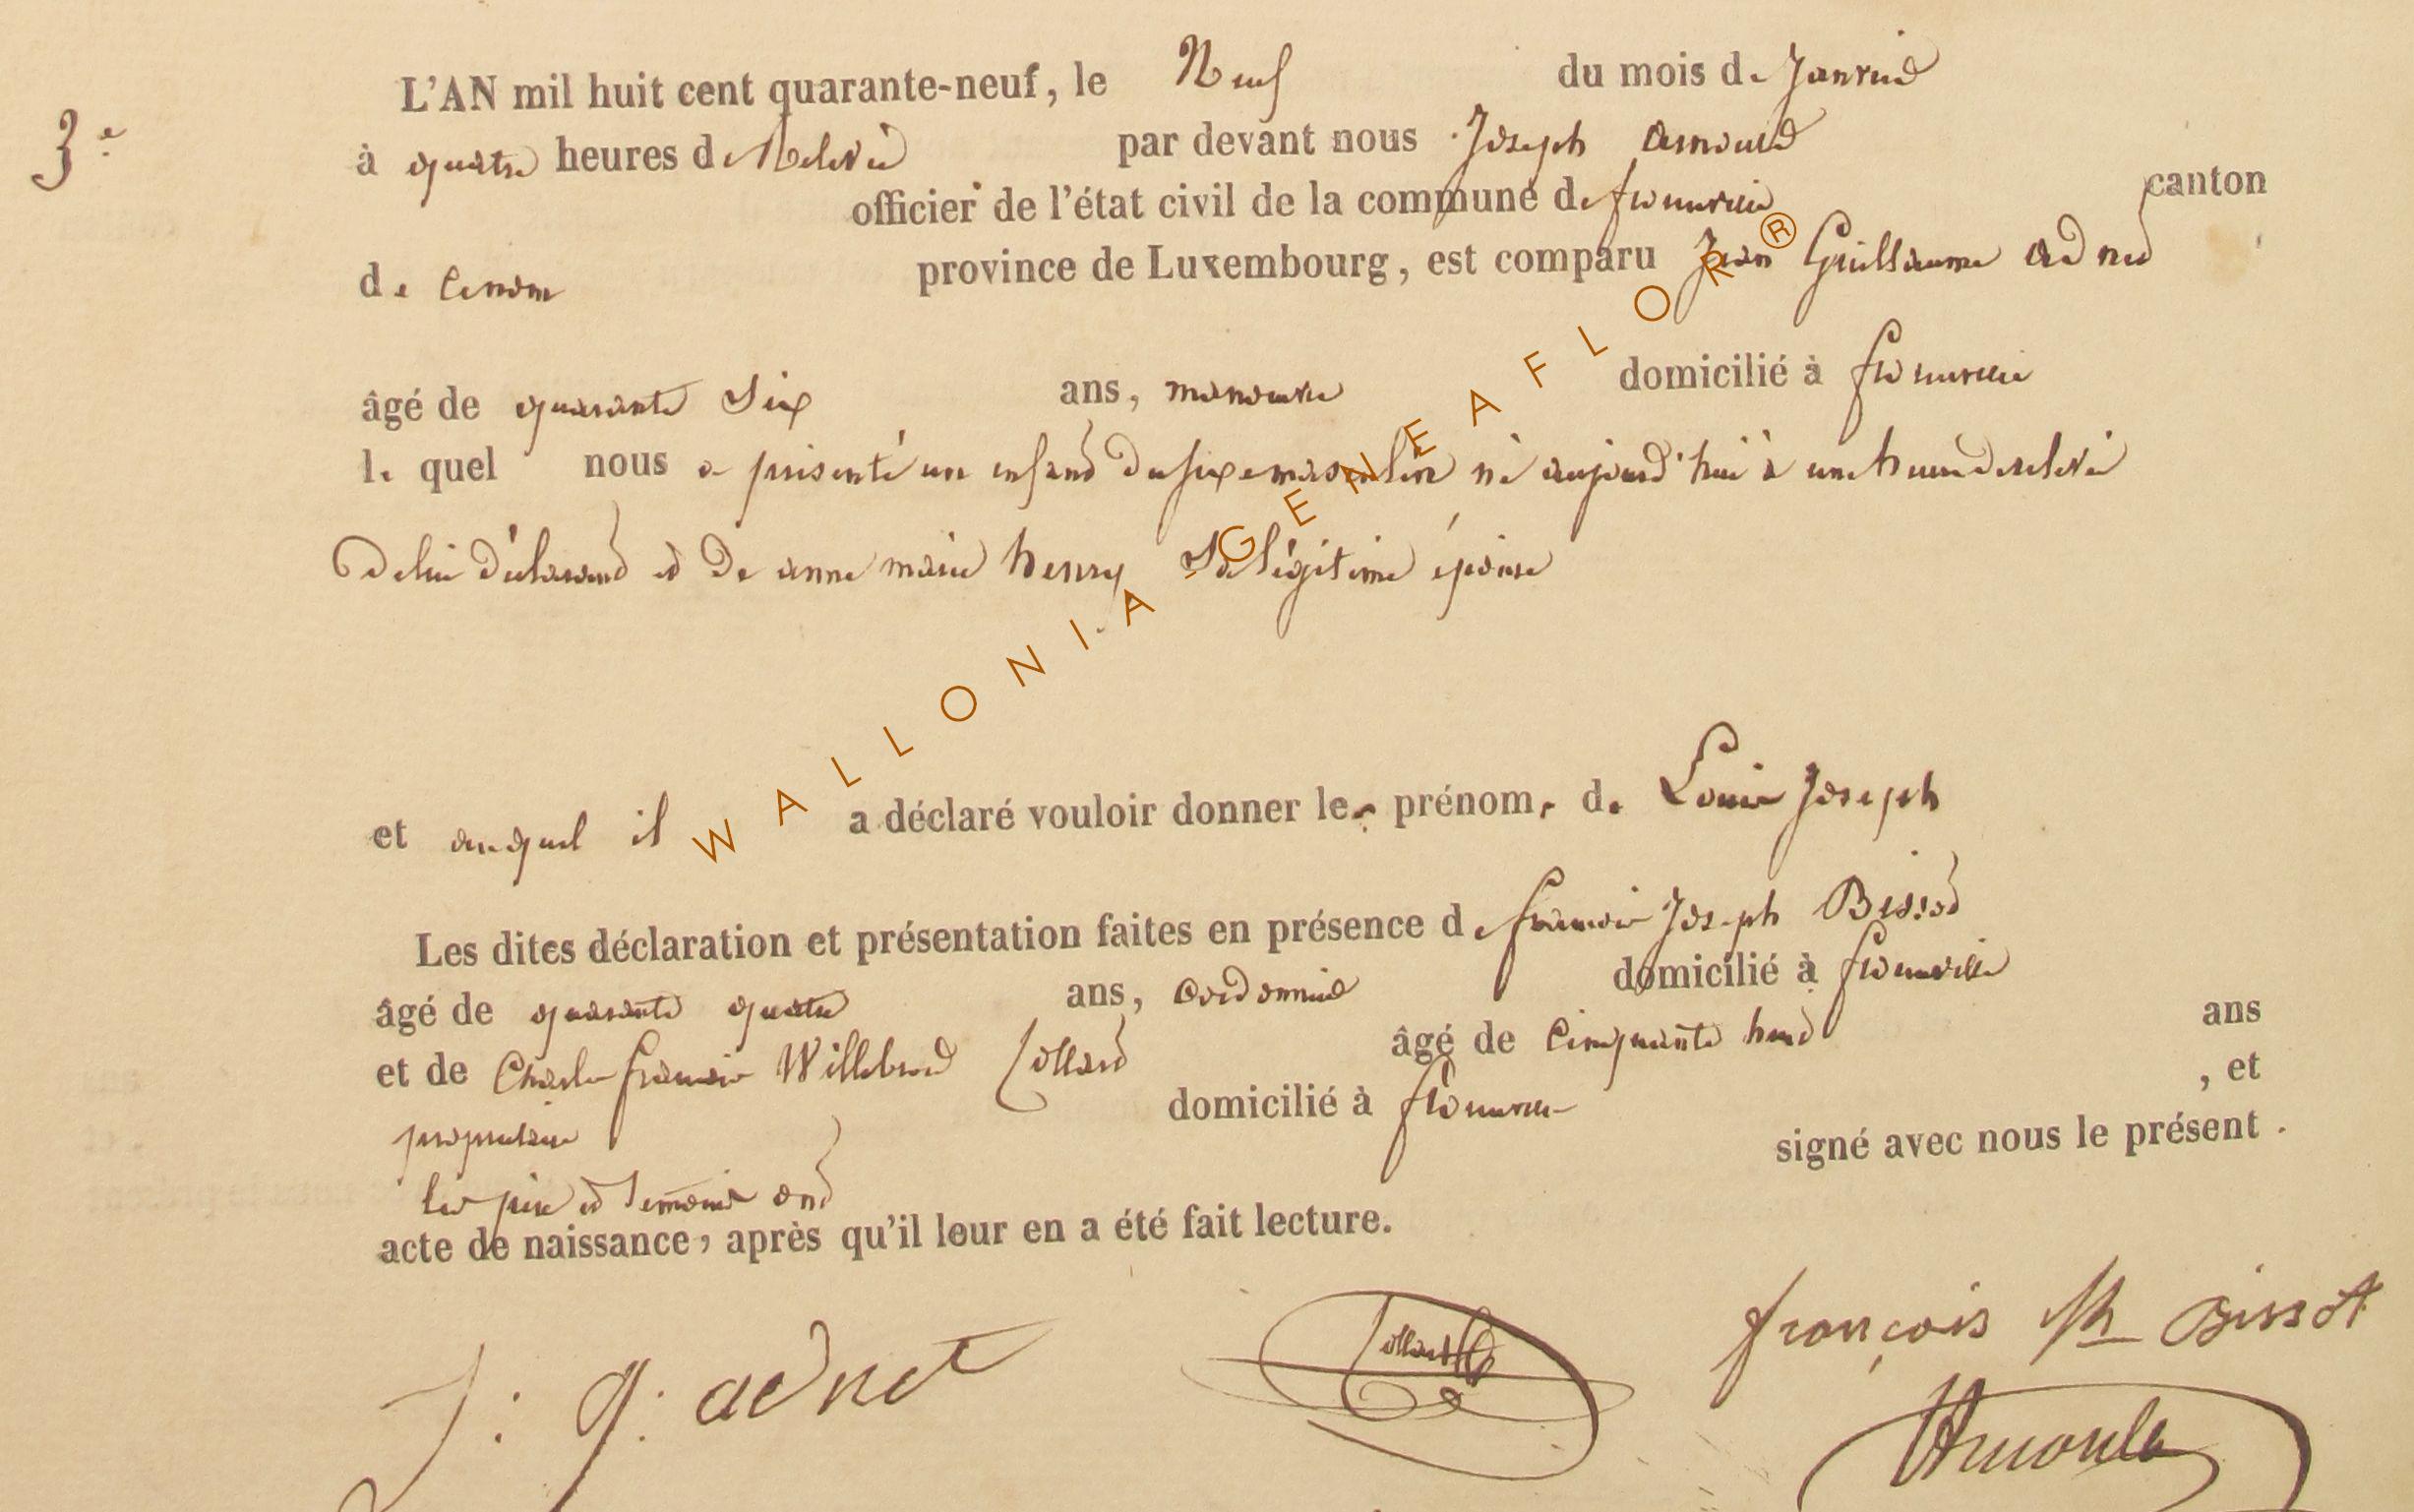 L'AN mil huit cent quarante-neuf, le Neuf du mois de Janvier
3e
à quatre heures de Relevée par devant nous Joseph Arnould
officier de l'état civil de la commune de florenville canton
de province de Luxembourg, est comparu Jean Guillaume adnet
âgé de quarante Six ans, manoeuvre domicilié à florenville
le quel nous a présenté un enfant du sexe masculin né aujourd'hui à une heure de relevée
de lui déclarant et de anne marie henry Sa légitime épouse
et auquel il a déclaré vouloir donner les prénoms de Louis Joseph
Les dites déclaration et présentation faites en présence de françois Joseph Bissot
âgé de quarante quatre ans, cordonnier domicilié à florenville
et de Charles françois Willebrord Collard âgé de Cinquante huit ans
propriétaire domicilié à florenville , et
les père et témoins ont signé avec nous le présent
acte de naissance, après qu'il leur en a été fait lecture.
J: g: adnet
Collard
françois Jh Bissot
Arnould
WALLONIA GENEAFLOR®